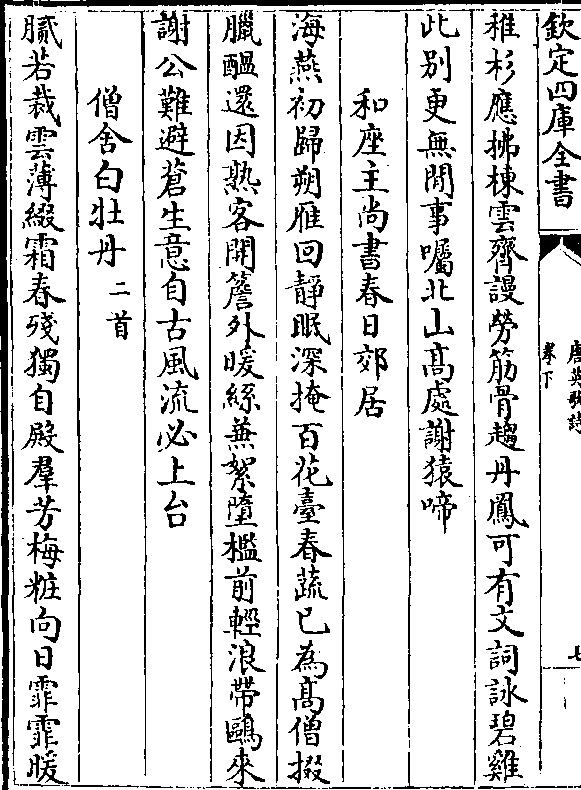 欽定四庫全書
唐英歌詩
卷下
七
稚杉應拂棟雲齊謾勞筋骨趨丹鳳可有文詞詠碧雞
此别更無閒事囑北山髙處謝猿啼
和座主尚書春日郊居
海燕初歸朔雁回靜眠深掩百花臺春蔬已為髙僧掇
臘醖還因熟客開簷外暖絲兼絮墮檻前輕浪帶鷗來
謝公難避蒼生意自古風流必上台
僧舍白牡丹二首
膩若裁雲薄綴霜春殘獨自殿羣芳梅粧向日霏霏暖